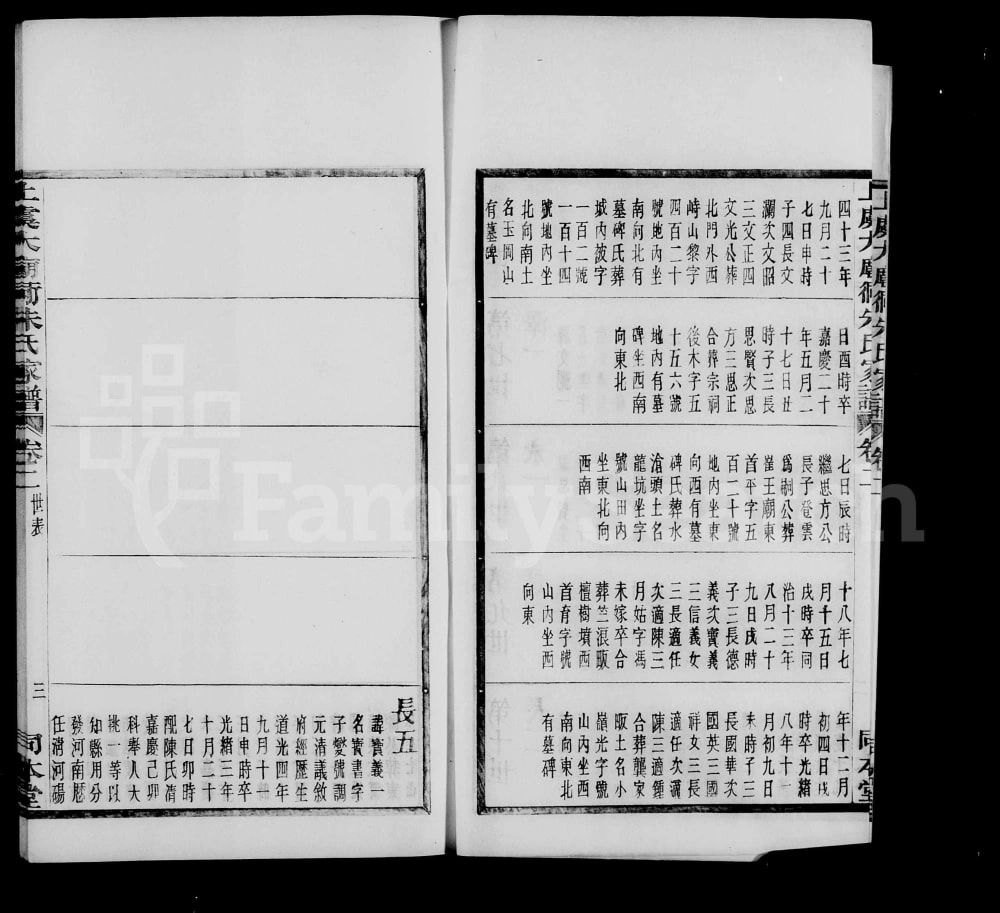 四十三年
九月二十
七日申時
子四長文
瀾次文昭
三文正四
文光公葬
北門外西
峙山黎字
四百二十
號地內坐
南向北有
墓碑氏葬
城內皷字
一百二號
一百十四
號地內坐
北向南土
名玉岡山
有墓碑
日酉時卒
嘉慶二十
年五月二
十七日丑
時子三長
思賢次思
方三思正
合葬宗祠
後木字五
十五六號
地內有墓
碑坐西南
向東北
七日辰時
繼思方公
長子登雲
爲嗣公葬
崔王廟東
首平字五
百二十號
地內坐東
向西有墓
碑氏葬水
滄頭土名
龍坑坐字
號山田內
坐東北向
西南
十八年七
月十五日
戌時卒同
治十三年
八月二十
九日戌時
子三長德
義次寶義
三信義女
三長適任
次適陳三
月姑字馮
未嫁卒合
葬竺浪畈
檀樹墳西
首育字號
山內坐西
向東
年十二月
初四日戌
時卒光緒
八年十一
月初九日
未時子三
長國華次
國英三國
祥女三長
適任次適
陳三適鍾
合葬龔家
畈土名小
嶺光字號
山內坐西
南向東北
有墓碑
上虞大廟衕朱氏家譜
卷二
同本堂
上虞大廟衕朱氏家譜
卷二
世表
三
同本堂
長五
諱寶義一
名寳書字
子燮號調
元清議敘
府經歷生
道光四年
九月十一
日申時卒
光緒三年
十月二十
七日卯時
配陳氏清
嘉慶己卯
科舉人大
挑一等以
知縣用分
發河南歷
任澠河碭